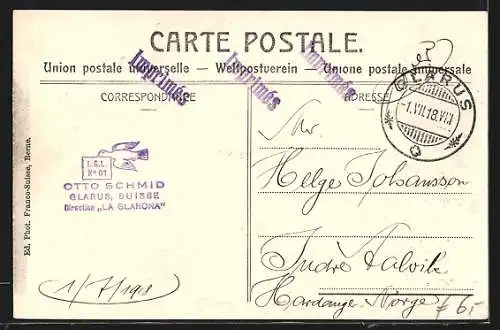 CARTE POSTALE.
Union postale universelle — Weltpostverein — Unione postale universale
Imprimés
Imprimés
Imprimés
CORRESPONDANCE
ADRESSE
GLARUS
-1.VII.18.VII
L.S.I.
Nº 01
OTTO SCHMID
GLARUS, SUISSE
Direction „LA GLARONA"
Ed. Phot. Franco-Suisse, Berne.
Hr.
Helge Johansson
Indre Aalvik
Hardanger Norge
1/7/1918
6.-